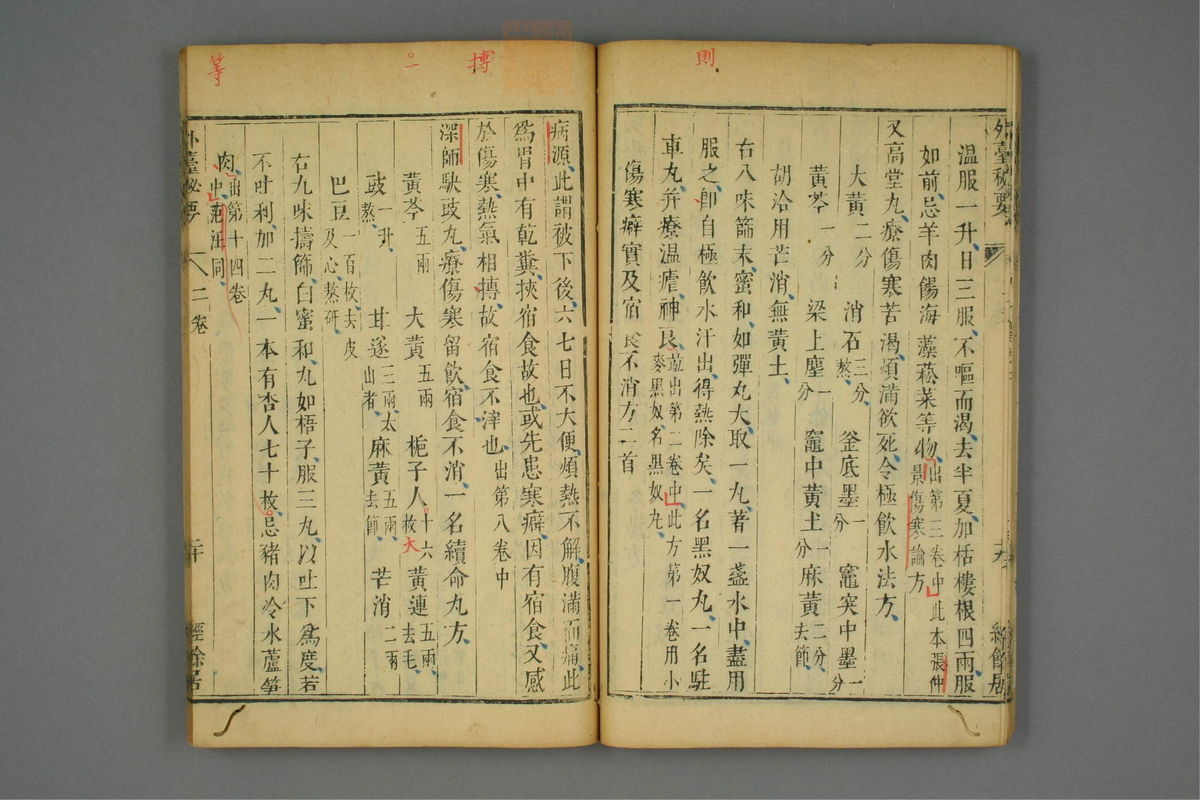 則
外臺秘要
溫服一升、日三服、不嘔而渴、去半夏、加栝樓根四兩、服
如前、忌羊肉餳海藻菘菜等物、出第三卷中此本張仲景傷寒論方
又高堂丸療傷寒苦渴、煩滿欲死、令極飲水法方、
大黃二分 消石三分、熬、 釜底墨一分 竈突中墨一分
黃芩一分 梁上塵一分 竈中黃土一分 麻黃二分、去節、
胡洽用芒消無黃土、
右八味篩末、蜜和、如彈丸大、取一丸、著一盞水中、盡用
服之、卽自極飲水汗出、得熱除矣、一名黑奴丸、一名駐
車丸、并療溫瘧、神良、並出第二卷中此方第一卷用小麥黑奴、名黑奴丸、
傷寒癖實及宿食不消方二首
等 一 摶
病源、此謂被下後、六七日不大便、煩熱不解、腹滿而痛、此
爲胃中有乾糞、挾宿食故也、或先患寒癖、因有宿食、又感
於傷寒、熱氣相摶、故宿食不滓也、出第八卷中
深師駃豉丸、療傷寒留飲、宿食不消、一名續命丸方、
黃芩五兩 大黃五兩 梔子人十六枚大 黃連五兩、去毛、
豉一升、熬、 甘遂三兩、太山者、 麻黃五兩、去節、 芒消二兩
巴豆一百枚、去皮及心、熬研、
右九味擣篩、白蜜和、丸如梧子、服三丸、以吐下爲度、若
不吐利、加二丸、一本有杏人七十枚、忌豬肉冷水蘆筍
肉、出第十四卷中、范汪同、
外臺秘要 二卷 二十 經餘居